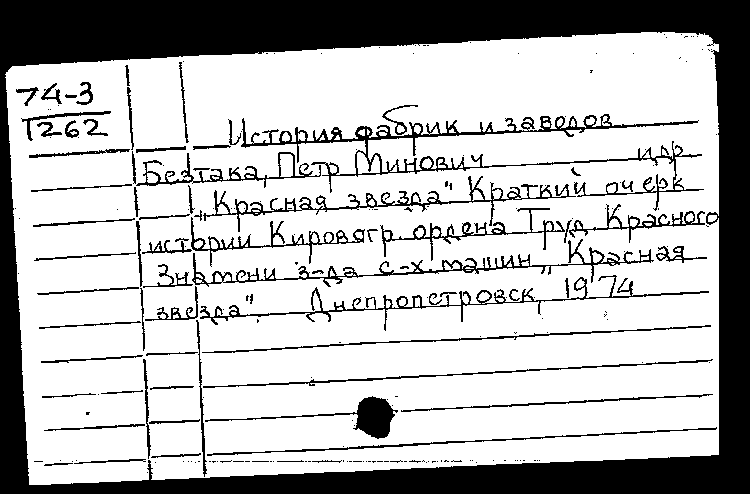 74-3
1262
История фабрик и заводов
Безтака, Петр Минович и др
„Красная звезда" Краткий очерк
истории Кировагр. ордена Труд. Красного
Знамени з-да с-х. машин „Красная
звезда". Днепропетровск, 1974